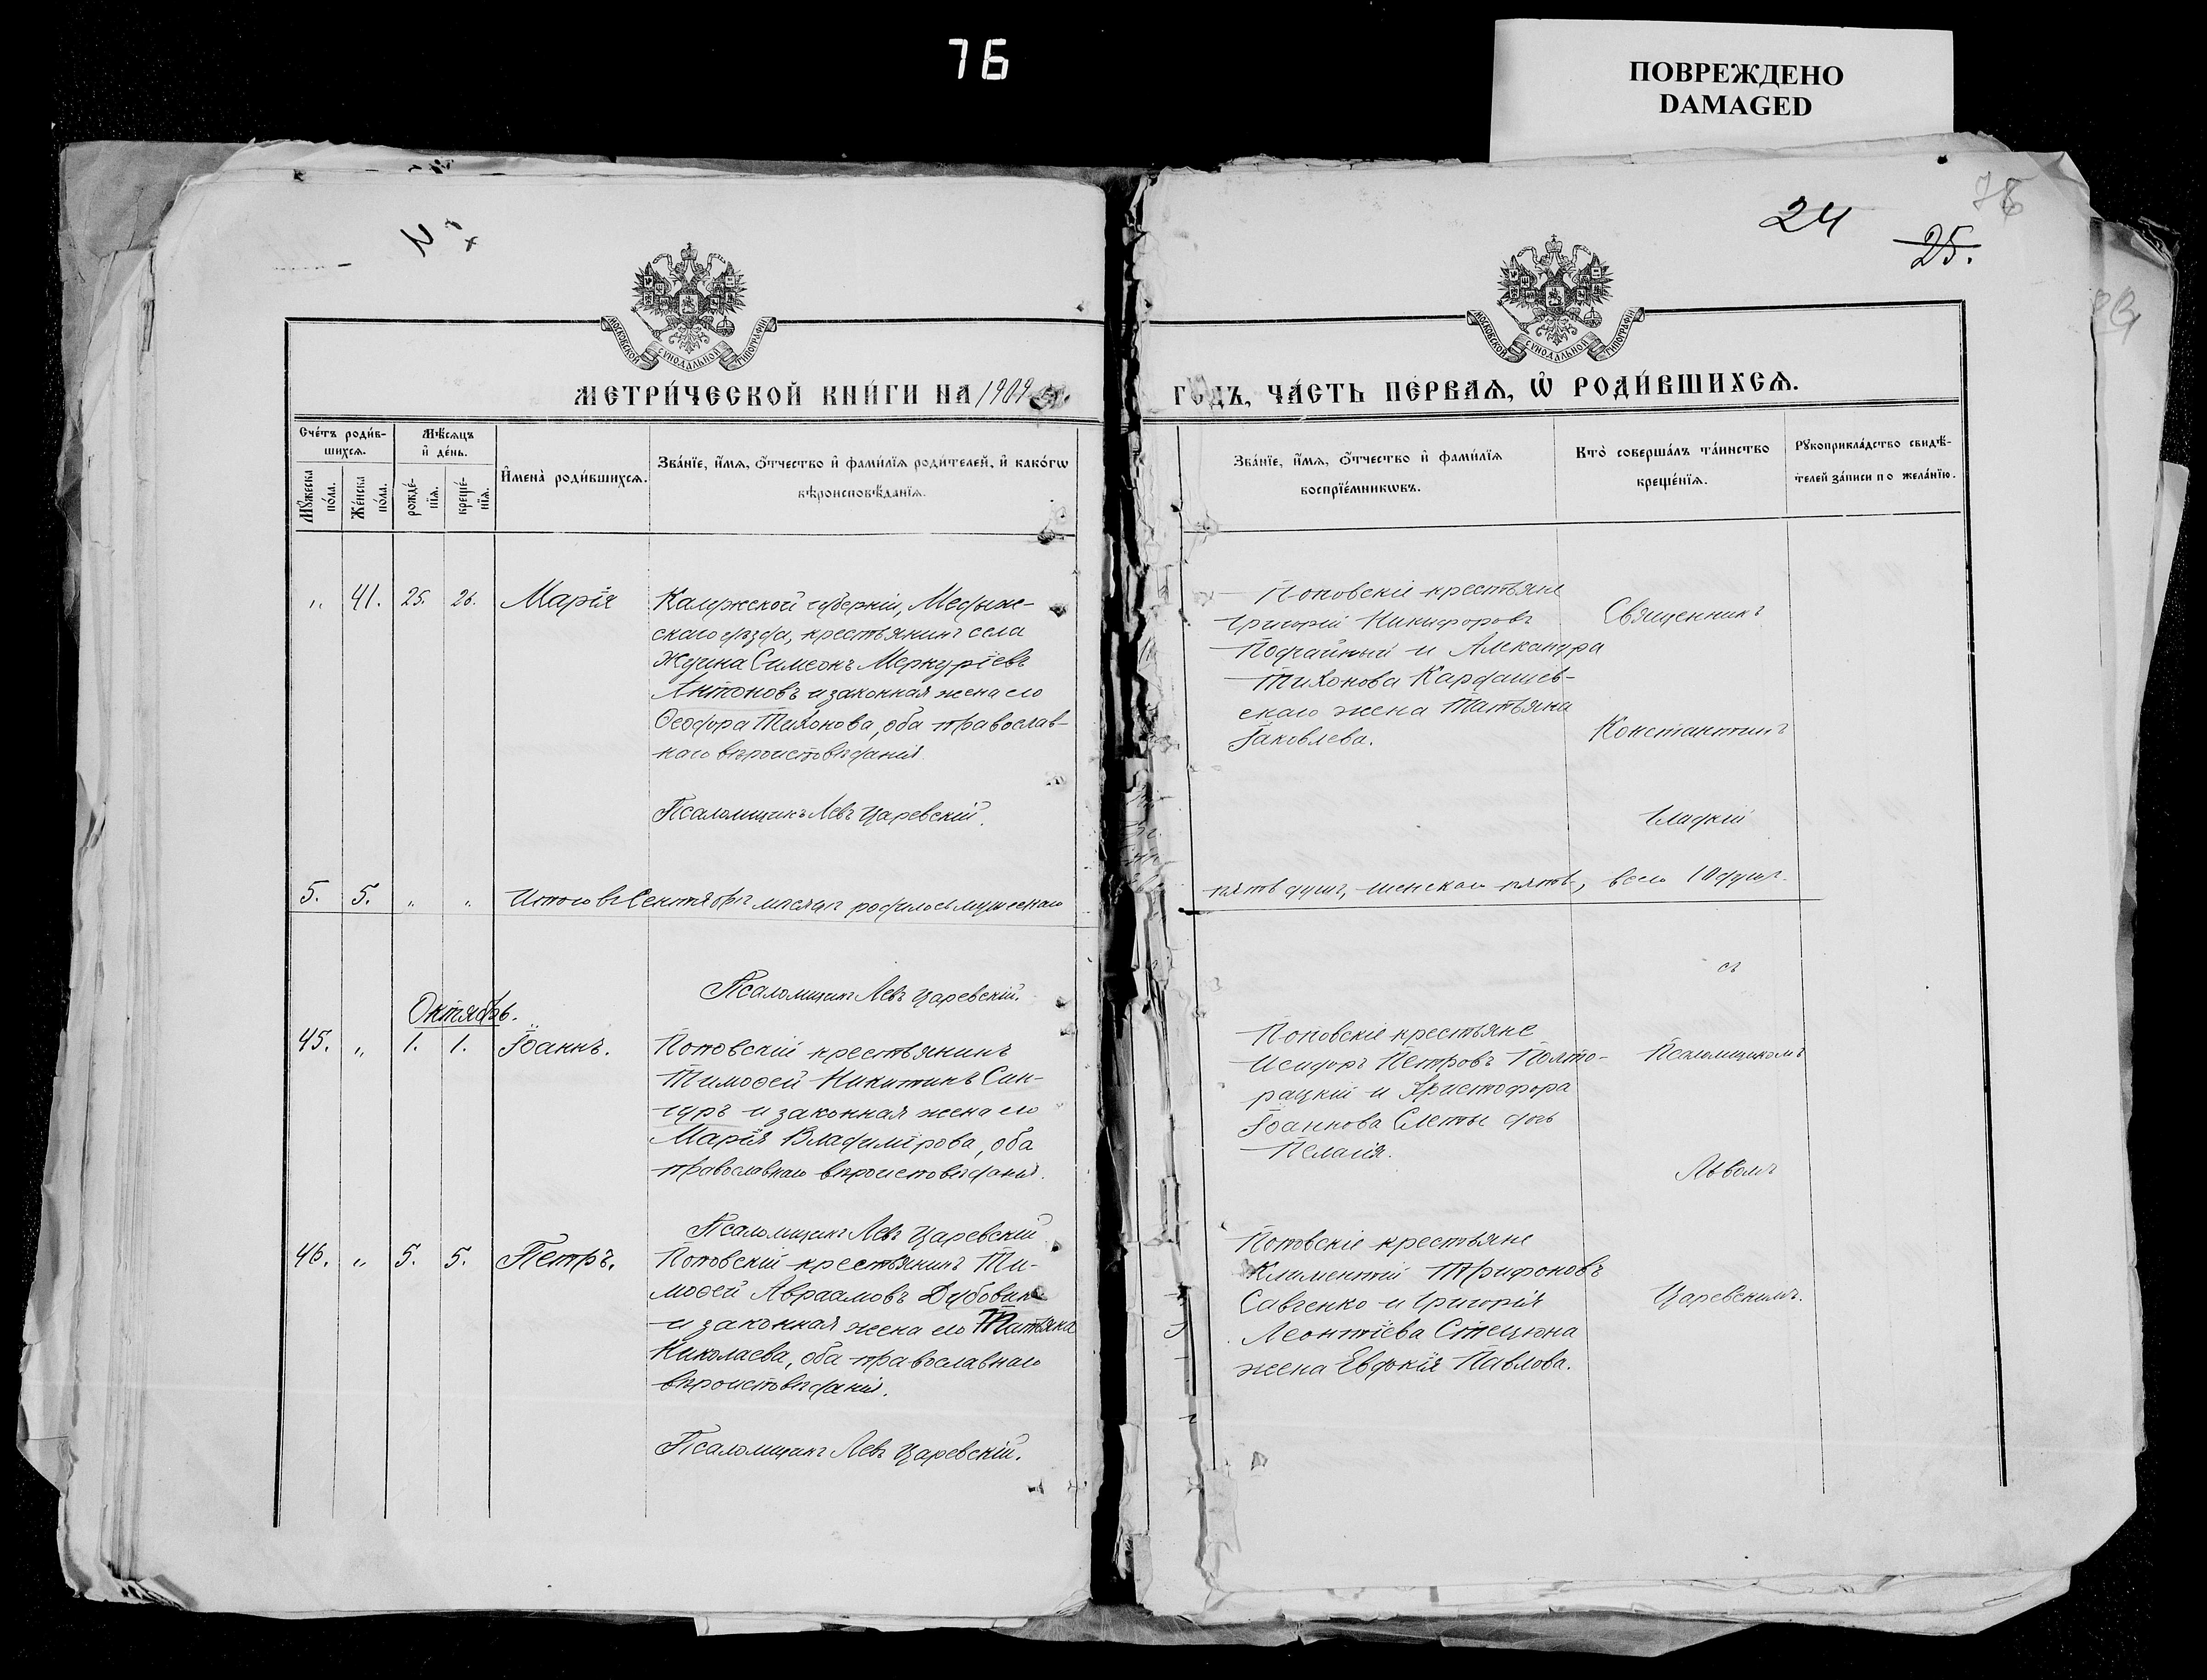 76
ПОВРЕЖДЕНО
DAMAGED
24
25.
76
МОСКОВСКОЙ СѴНОДАЛЬНОЙ ТИПОГРАФІИ
МОСКОВСКОЙ СѴНОДАЛЬНОЙ ТИПОГРАФІИ
МЕТРИ́ЧЕСКОЙ КНИ́ГИ НА 1909
ГОДЪ, ЧА́СТЬ ПЕ́РВАѦ, Ѡ҆ РОДИ́ВШИХСѦ.
Сче́тъ роди́в-
шихсѧ.
Мꙋ́жеска
по́ла.
Же́нска
по́ла.
Мѣ́сѧцъ
и҆ де́нь.
рожде́-
нїѧ.
креще́-
нїѧ.
И҆мена̀ роди́вшихсѧ.
Зва́нїе, и҆́мѧ, ѻ҆́тчество и҆ фами́лїѧ роди́телей, и҆ како́гѡ
вѣроисповѣ́данїѧ.
Зва́нїе, и҆́мѧ, ѻ҆́тчество и҆ фами́лїѧ
воспрїе́мникѡвъ.
Кто̀ соверша́лъ та́инство
креще́нїѧ.
Рꙋкоприкла́дство свидѣ́-
телей за́писи по жела́нїю.
„ 41. 25. 26. Марія
Калужской губерніи, Медын-
скаго уѣзда, крестьянинъ села
Жуина Симеонъ Меркуріевъ
Антоновъ и законная жена его
Ѳеодора Тихонова, оба православ-
наго вѣроисповѣданія.
Псаломщикъ Левъ Царевскій.
Поповскіе крестьяне
Григорій Никифоровъ
Подгайный и Александра
Тихонова Кардашев-
скаго жена Татьяна
Іаковлева.
Священникъ
Константинъ
Гладкій
5. 5. „ „ Итого въ Сентябрѣ мѣсяцѣ родилось мужескаго
пять душъ, женскаго пять, всего 10 душъ.
Псаломщикъ Левъ Царевскій.
Октябрь.
45. „ 1. 1. Іоаннъ.
Поповскій крестьянинъ
Тимоѳей Никитинъ Син-
гуръ и законная жена его
Марія Владимірова, оба
православнаго вѣроисповѣданія.
Псаломщикъ Левъ Царевскій
Поповскіе крестьяне
Исидоръ Петровъ Полто-
рацкій и Христофора
Іоаннова Слеты дочь
Пелагія.
съ
Псаломщикомъ
Львомъ
Царевскимъ.
46. „ 5. 5. Петръ.
Поповскій крестьянинъ Ти-
моѳей Авраамовъ Дубовикъ
и законная жена его Татьяна
Николаева, оба православнаго
вѣроисповѣданія.
Псаломщикъ Левъ Царевскій.
Поповскіе крестьяне
Климентій Трифоновъ
Савченко и Григорія
Леонтіева Стецюна
жена Евдокія Павлова.